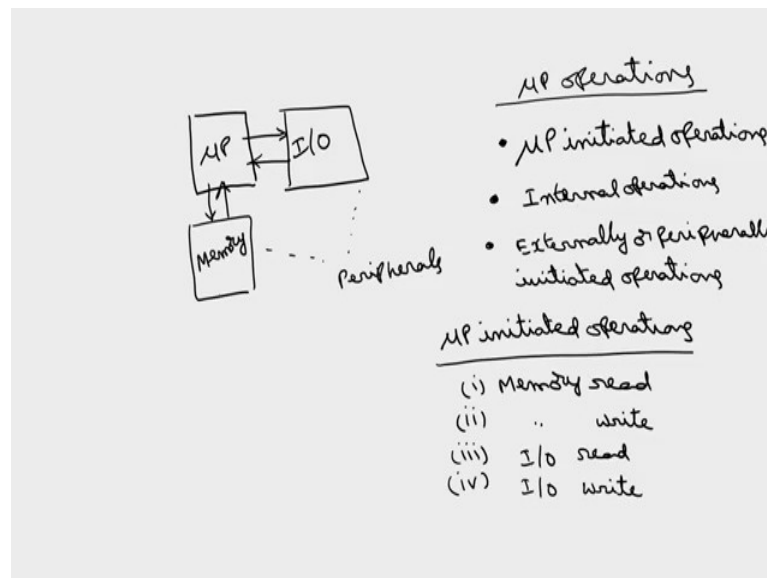 μP
I/O
Memory
Peripherals
μP operations
• μP initiated operations
• Internal operations
• Externally or peripherall
initiated operations
μP initiated operations
(i) Memory read
(ii) " write
(iii) I/O read
(iv) I/O write